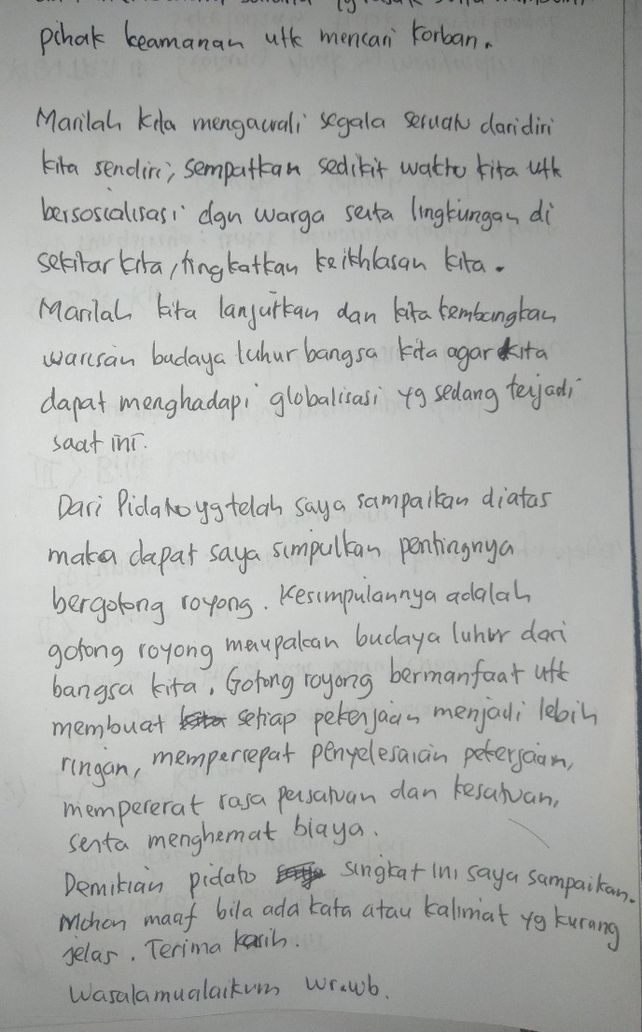 pihak keamanan utk mencari korban.
Marilah kita mengawali segala sesuatu dari diri
kita sendiri, sempatkan sedikit waktu kita utk
bersosialisasi dgn warga serta lingkungan di
sekitar kita, tingkatkan keikhlasan kita.
Marilah kita lanjutkan dan kita kembangkan
warisan budaya luhur bangsa kita agar kita
dapat menghadapi globalisasi yg sedang terjadi
saat ini.
Dari Pidato yg telah saya sampaikan diatas
maka dapat saya simpulkan pentingnya
bergotong royong. Kesimpulannya adalah
gotong royong merupakan budaya luhur dari
bangsa kita. Gotong royong bermanfaat utk
membuat setiap pekerjaan menjadi lebih
ringan, mempercepat penyelesaian pekerjaan,
mempererat rasa persatuan dan kesatuan,
serta menghemat biaya.
Demikian pidato singkat ini saya sampaikan.
Mohon maaf bila ada kata atau kalimat yg kurang
jelas. Terima kasih.
Wasalamualaikum wr.wb.